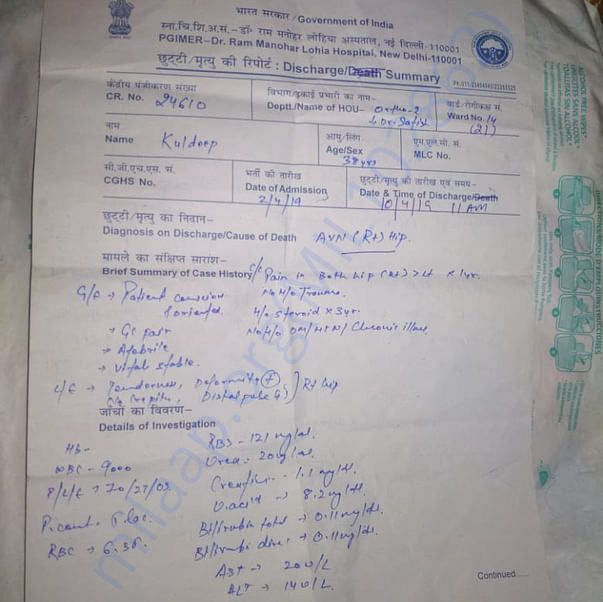 भारत सरकार / Government of India
स्ना.चि.शि.अ.सं.-डॉ॰ राम मनोहर लोहिया अस्पताल, नई दिल्ली-110001
PGIMER-Dr. Ram Manohar Lohia Hospital, New Delhi-110001
छुट्टी/मृत्यु की रिपोर्ट : Discharge/Death Summary
केंद्रीय पंजीकरण संख्या
CR. No. 24610
विभाग/इकाई प्रभारी का नाम-
Deptt./Name of HOU- Ortho-2
Dr. Satish
वार्ड/रोगीकक्ष सं.
Ward No. 14
(21)
नाम
Name Kuldeep
आयु/लिंग
Age/Sex
38 yrs
एम.एल.सी. सं.
MLC No.
सी.जी.एच.एस. सं.
CGHS No.
भर्ती की तारीख
Date of Admission
2/4/19
छुट्टी/मृत्यु की तारीख एवं समय-
Date & Time of Discharge/Death
10/4/19 11 AM
छुट्टी/मृत्यु का निदान-
Diagnosis on Discharge/Cause of Death AVN (Rt) Hip.
मामले का संक्षिप्त सारांश-
Brief Summary of Case History C/C Pain in Both hip (Rt) > Lt x 1yr.
G/E → Patient conscious No H/o Trauma.
& oriented. H/o steroid x 3yr.
→ GC fair No H/o DM/HTN/Chronic illness
→ Afebrile
→ Vital stable.
L/E → Tenderness, Deformity (+) Rt hip
Distal pulse
जाँचों का विवरण-
Details of Investigation
Hb-
RBS - 121 mg/dl.
WBC - 9000
Urea - 20 mg/dl.
P/L/E → 70/27/03
Creatinine - 1.1 mg/dl.
P.count.
U.acid → 8.2 mg/dl.
RBC → 6.38
Bilirubin total → 0.11 mg/dl.
Bilirubin direct → 0.11 mg/dl.
AST → 20 U/L
ALT → 14 U/L.
Continued......
ALCOHOL FREE WIPES
milaap.org